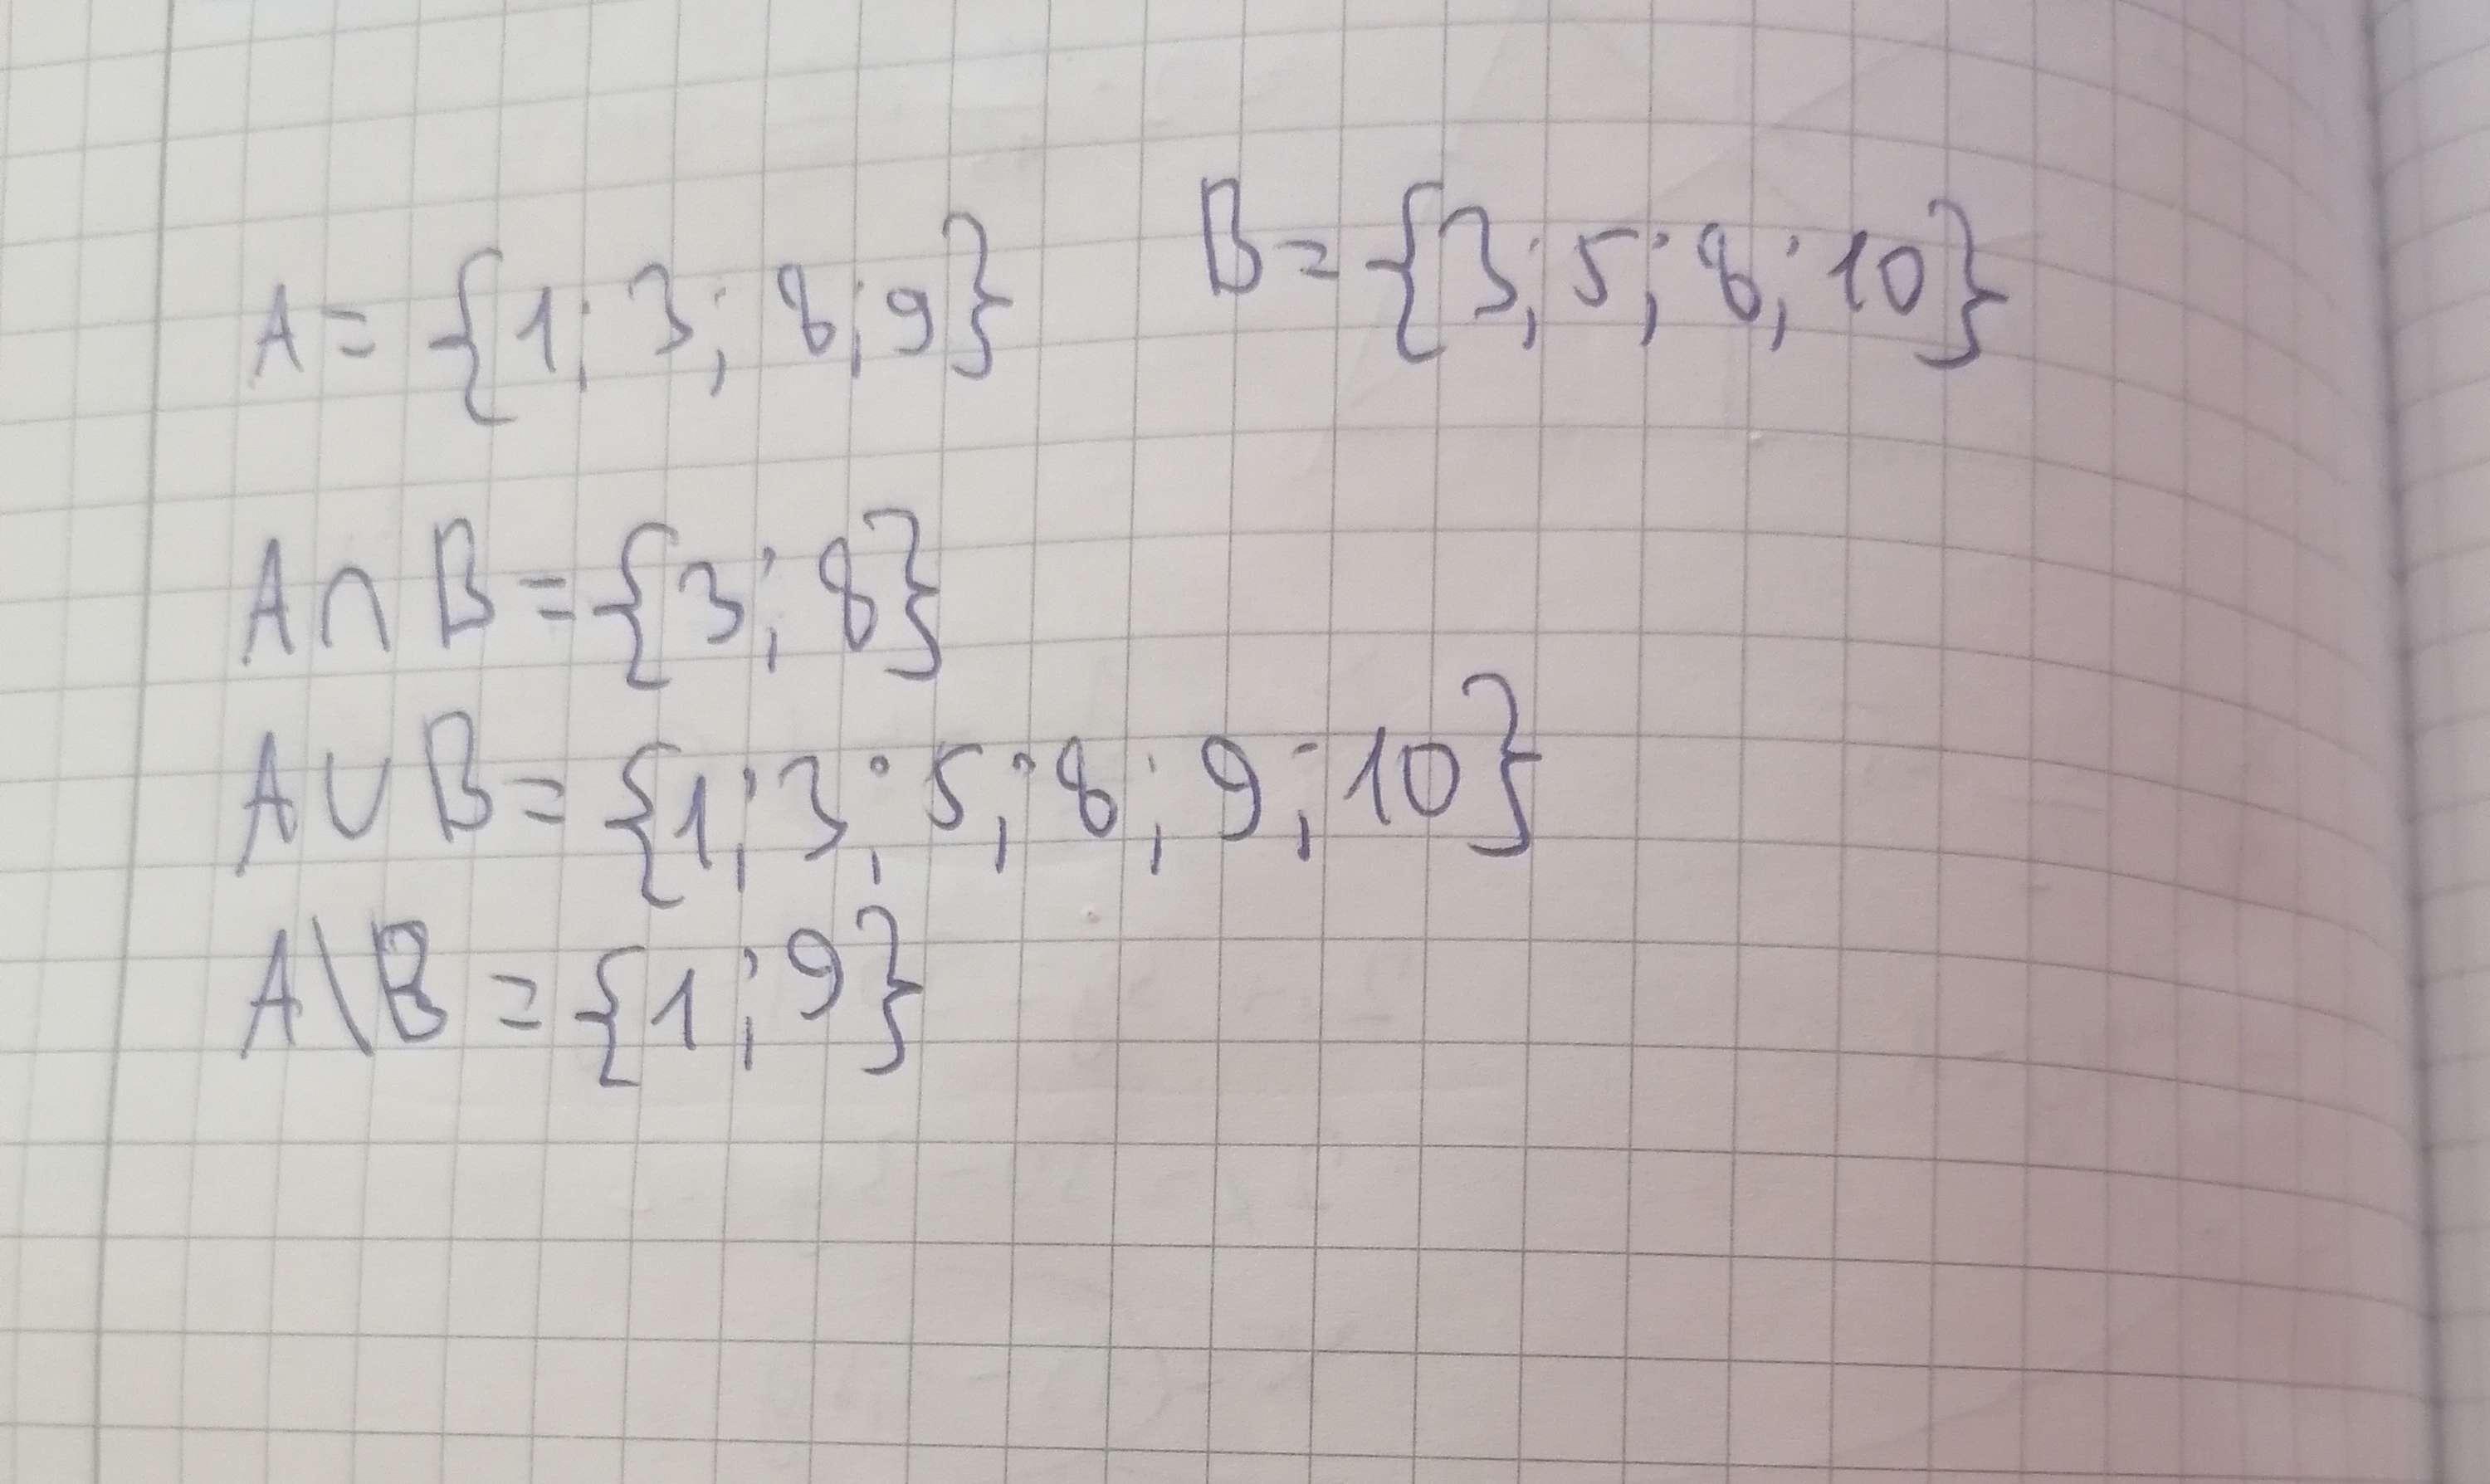 A = {1; 3; 8; 9} B = {3; 5; 8; 10}
A ∩ B = {3; 8}
A ∪ B = {1; 3; 5; 8; 9; 10}
A \ B = {1; 9}